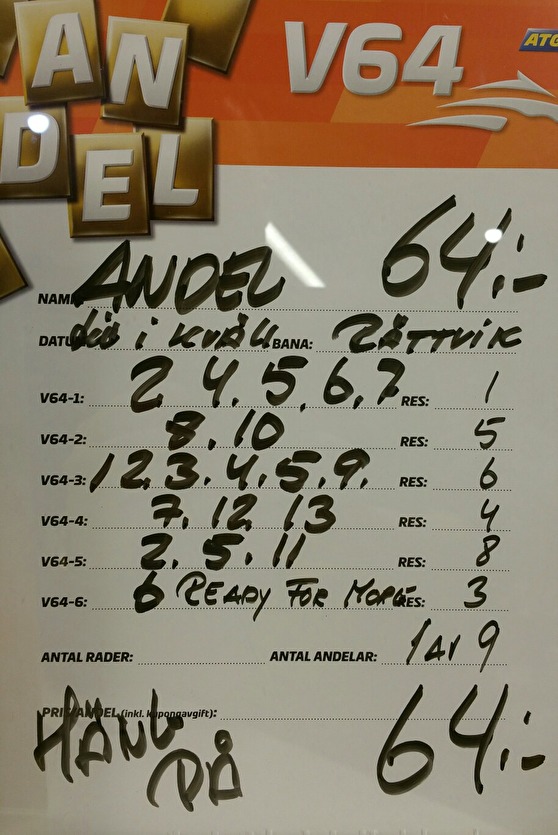 ANDEL
V64
ATG
NAMN: ANDEL 64:-
DATUM: i KVÄLL BANA: RÄTTVIK
V64-1: 2 4. 5. 6. 7 RES: 1
V64-2: 8. 10 RES: 5
V64-3: 1 2. 3. 4. 5. 9. RES: 6
V64-4: 7. 12 13 RES: 4
V64-5: 2. 5. 11 RES: 8
V64-6: 6 READY FOR MORE RES: 3
ANTAL RADER: ANTAL ANDELAR: 1 AV 9
PRIS/ANDEL (inkl. kupongavgift):
HÄNG
PÅ 64:-